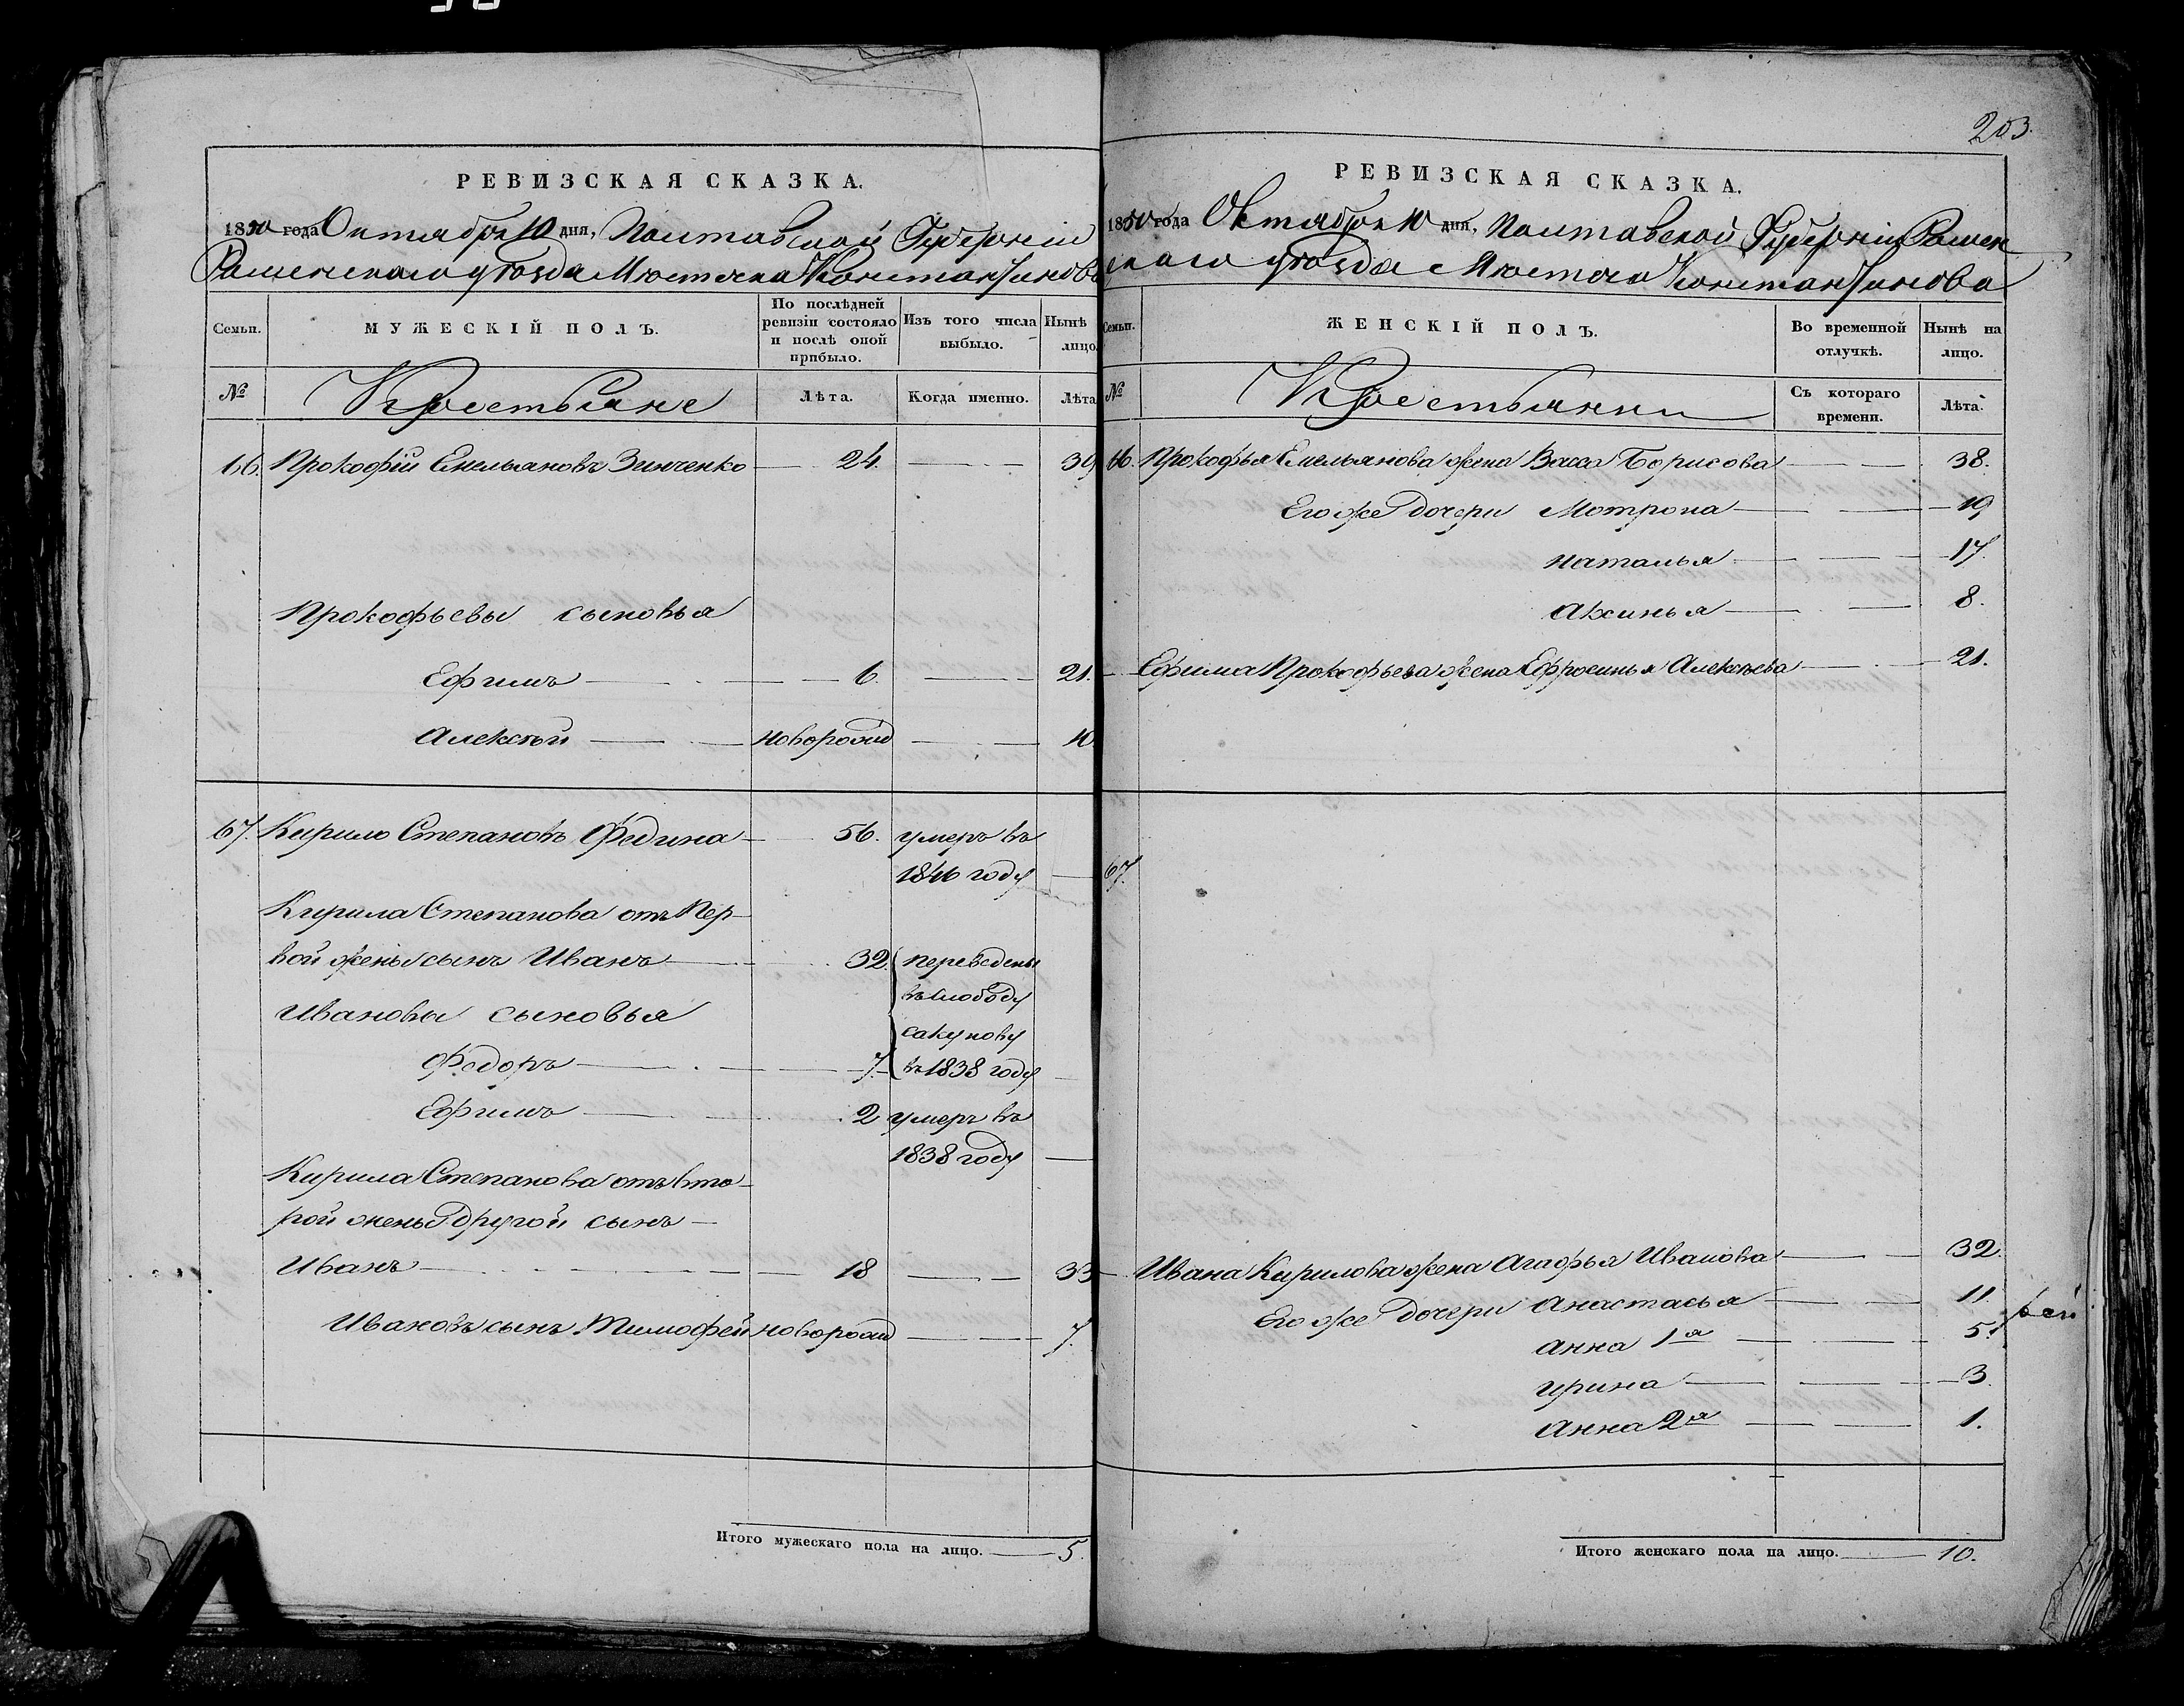 РЕВИЗСКАЯ СКАЗКА.
1850 года Октября 10 дня, Полтавской Губерніи
Роменского уѣзда Мѣстечка Константинова
Семьи.
МУЖЕСКІЙ ПОЛЪ.
По послѣдней ревизіи состояло и послѣ оной прибыло.
Изъ того числа выбыло.
Нынѣ лицо.
№
Крестьяне
Лѣта.
Когда именно.
Лѣта
66. Прокофій Емельяновъ Зинченко 24. 39
Прокофьевы сыновья
Ефимъ 6. 21.
Алексѣй новорожд 10.
67. Кирило Степановъ Федина 56. умеръ въ
1846 году
Кирила Степанова отъ пер-
вой жены сынъ Иванъ 32. переведены
въ слободу
Ивановы сыновья
сакунову
Федоръ 7. въ 1838 году
Ефимъ 2 умеръ въ
1838 году
Кирила Степанова отъ вто-
рой жены другой сынъ
Иванъ 18 33
Ивановъ сынъ Тимофей новорожд 7.
Итого мужескаго пола на лицо. 5.
203.
РЕВИЗСКАЯ СКАЗКА.
1850 года Октября 10 дня, Полтавской Губерніи Ромен
ского уѣзда Мѣстечка Константинова
Семьи.
ЖЕНСКІЙ ПОЛЪ.
Во временной отлучкѣ.
Нынѣ на лицо.
№
Крестьянки
Съ котораго времени.
Лѣта.
66. Прокофья Емельянова жена Васса Борисова 38.
Его же дочери Мотрона 19
Наталья 17.
Аксинья 8.
Ефима Прокофьева жена Ефросинья Алексѣева 21.
67.
Ивана Кирилова жена Агафья Иванова 32.
Его же дочери Анастасья 11.
Анна 1я 5.
Ирина 3.
Анна 2я 1.
Итого женскаго пола на лицо. 10.